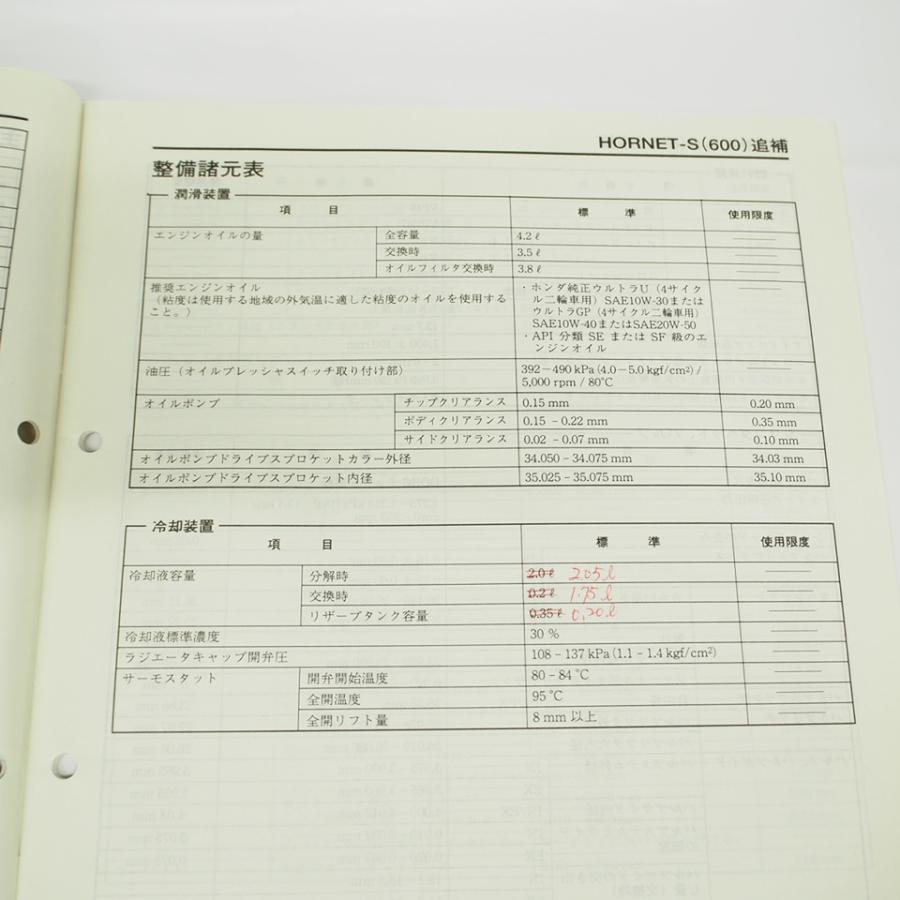 HORNET-S(600)追補
整備諸元表
潤滑装置
項 目 標 準 使用限度
エンジンオイルの量 全容量 4.2ℓ
交換時 3.5ℓ
オイルフィルタ交換時 3.8ℓ
推奨エンジンオイル
(粘度は使用する地域の外気温に適した粘度のオイルを使用する
こと。)
・ホンダ純正ウルトラU(4サイク
ル二輪車用)SAE10W-30または
ウルトラGP(4サイクル二輪車用)
SAE10W-40またはSAE20W-50
・API 分類 SE または SF 級のエ
ンジンオイル
油圧(オイルプレッシャスイッチ取り付け部) 392-490 kPa(4.0-5.0 kgf/cm²)/
5,000 rpm / 80℃
オイルポンプ チップクリアランス 0.15 mm 0.20 mm
ボディクリアランス 0.15 - 0.22 mm 0.35 mm
サイドクリアランス 0.02 - 0.07 mm 0.10 mm
オイルポンプドライブスプロケットカラー外径 34.050 - 34.075 mm 34.03 mm
オイルポンプドライブスプロケット内径 35.025 - 35.075 mm 35.10 mm
冷却装置
項 目 標 準 使用限度
冷却液容量 分解時 2.0ℓ 2.05ℓ
交換時 0.2ℓ 1.75ℓ
リザーブタンク容量 0.35ℓ 0.20ℓ
冷却液標準濃度 30 %
ラジエータキャップ開弁圧 108 - 137 kPa(1.1 - 1.4 kgf/cm²)
サーモスタット 開弁開始温度 80 - 84 ℃
全開温度 95 ℃
全開リフト量 8 mm 以上